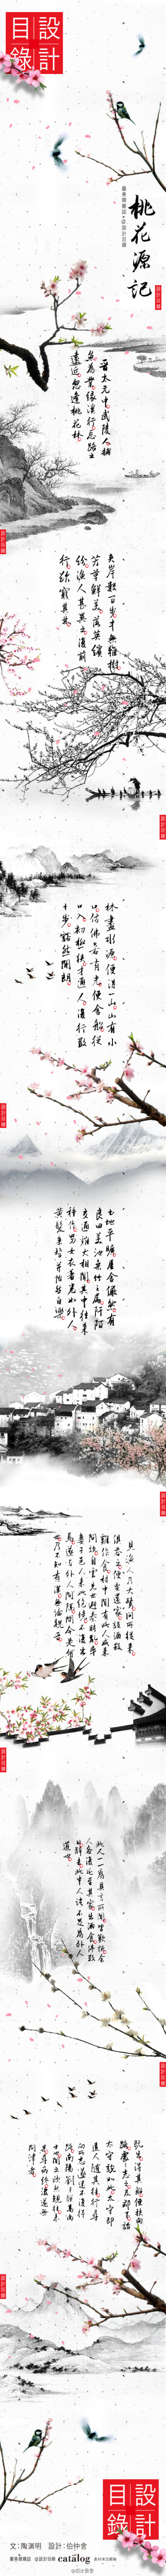 設計
目錄
桃花源記
最美雜雜誌·@設計目錄
晉太元中武陵人捕
魚為業緣溪行忘路之
遠近忽逢桃花林
設計目錄
夾岸數百步中無雜樹
芳草鮮美落英繽
紛漁人甚異之復前
行欲窮其林
設計目錄
林盡水源便得一山山有小
口彷彿若有光便舍船從
口入初極狹才通人復行數
十步豁然開朗
設計目錄
土地平曠屋舍儼然有
良田美池桑竹之屬阡陌
交通雞犬相聞其中往來
種作男女衣著悉如外人
黃髮垂髫並怡然自樂
設計目錄
見漁人乃大驚問所從來
具答之便要還家設酒殺
雞作食村中聞有此人咸來
問訊自云先世避秦時亂率
妻子邑人來此絕境不復出
焉遂與外人間隔問今是何
世乃不知有漢無論魏晉
設計目錄
此人一一為具言所聞皆歎惋餘
人各復延至其家皆出酒食停數
日辭去此中人語云不足為外人
道也
設計目錄
既出得其船便扶向
路處處誌之及郡下詣
太守說如此太守即
遣人隨其往尋
向所誌遂迷不復得
路南陽劉子驥高尚
士也聞之欣然規往未
果尋病終後遂無
問津者
設計目錄
設計
目錄
文:陶渊明 設計:伯仲舍
@設計目錄
catalog
@设计目录